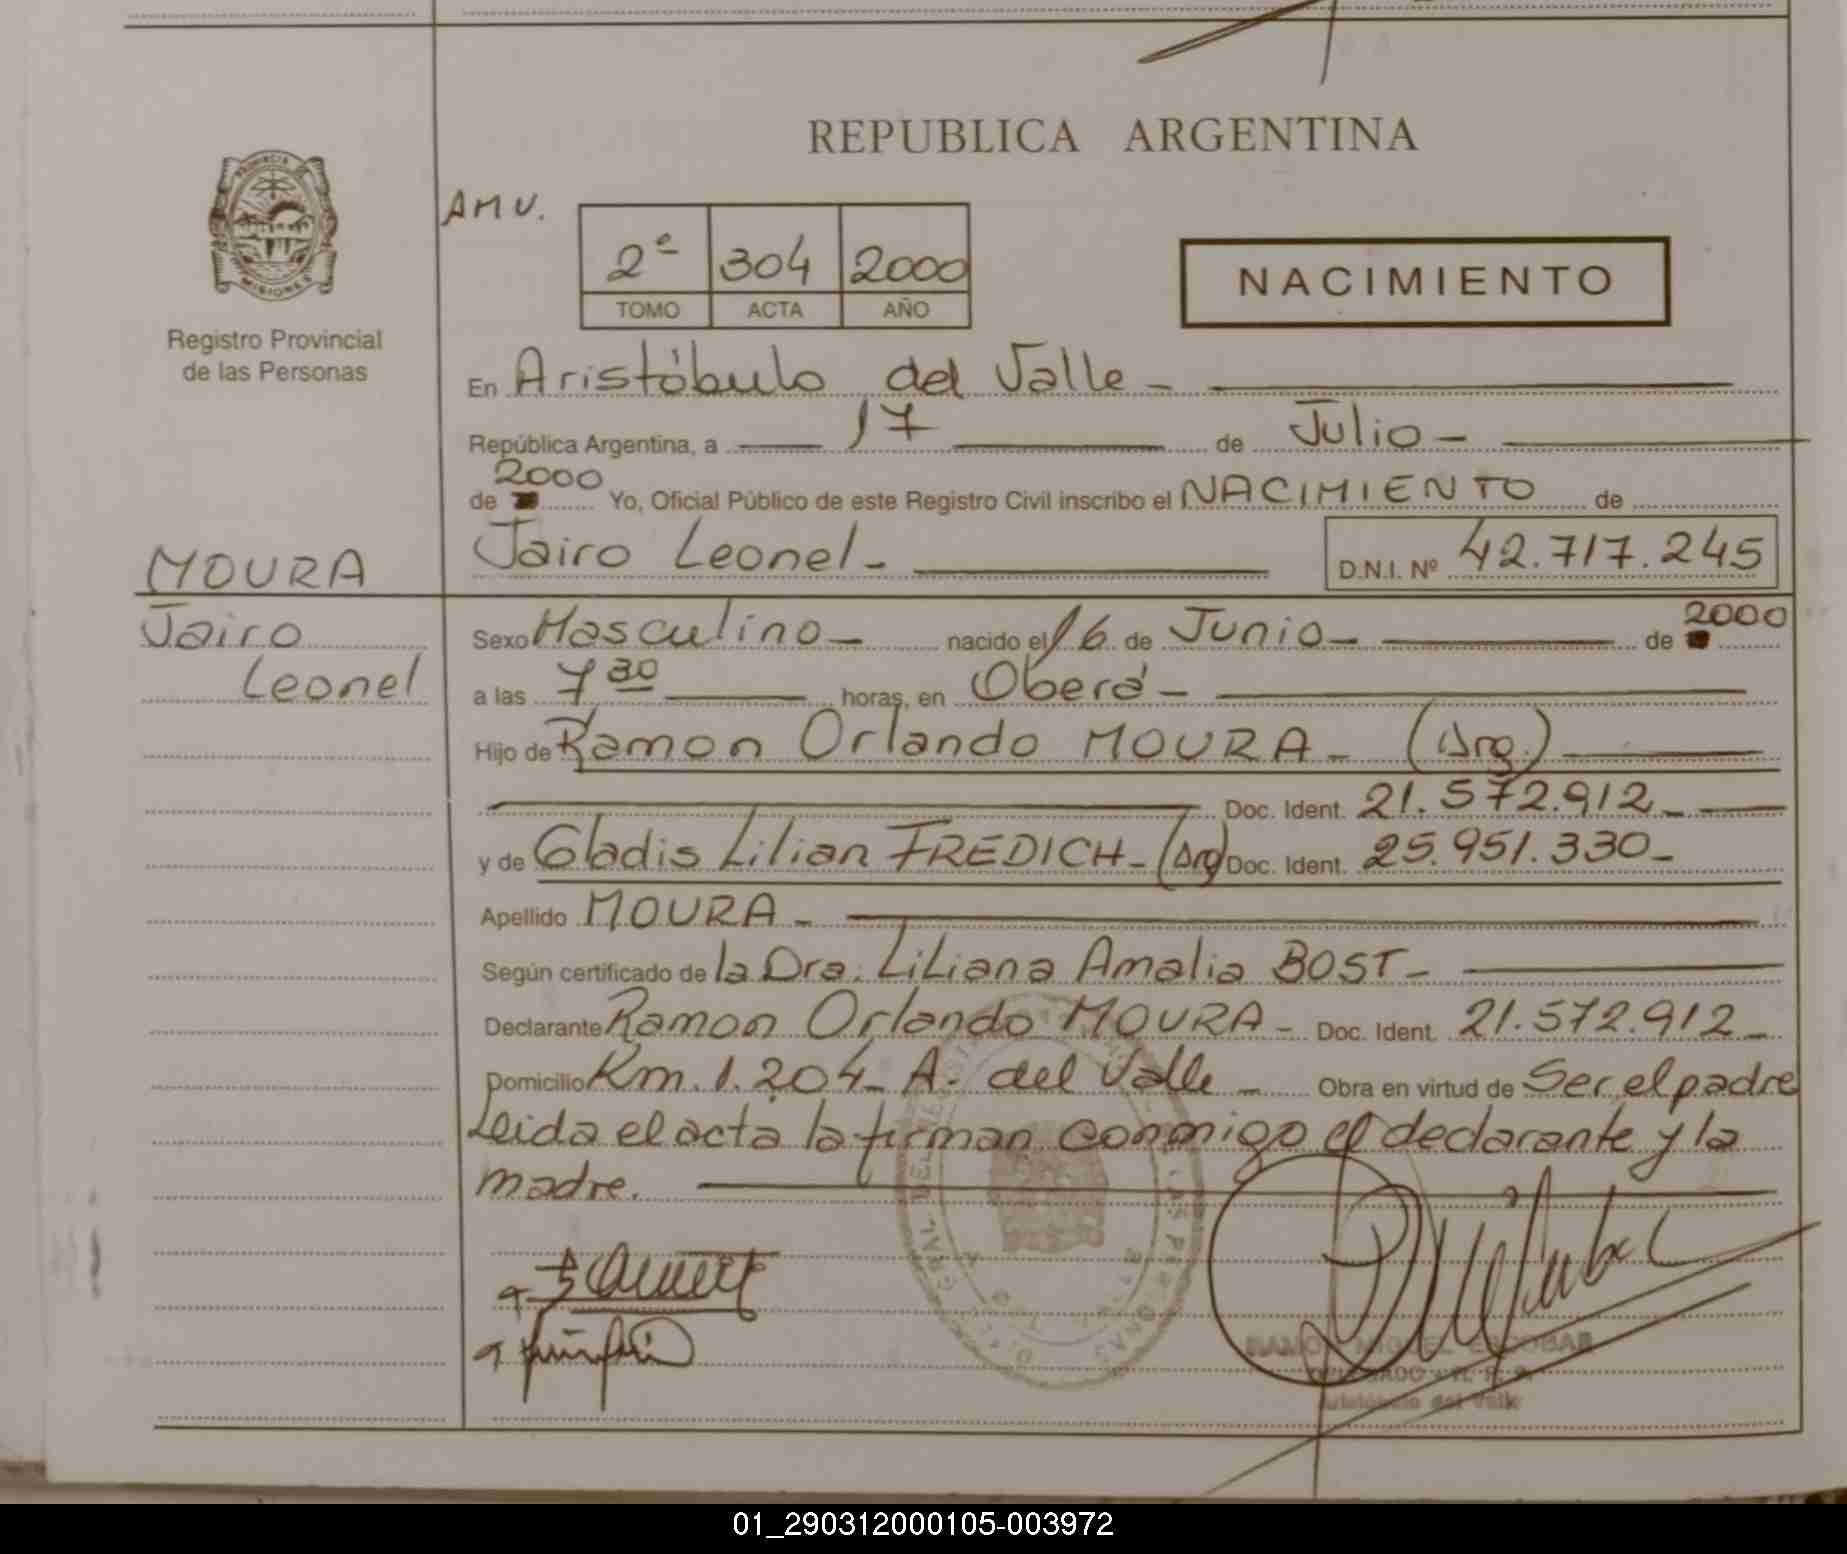 REPUBLICA ARGENTINA
PROVINCIA
MISIONES
Registro Provincial
de las Personas
AMV.
2º 304 2000
TOMO ACTA AÑO
NACIMIENTO
En Aristóbulo del Valle -
República Argentina, a 17 de Julio -
de 2000 Yo, Oficial Público de este Registro Civil inscribo el NACIMIENTO de
Jairo Leonel - D.N.I. Nº 42.717.245
MOURA
Jairo
Leonel
Sexo Masculino - nacido el 16 de Junio - de 2000
a las 7 30 horas, en Oberá -
Hijo de Ramon Orlando MOURA - (Arg.)
Doc. Ident. 21.572.912 -
y de Gladis Lilian FREDICH - (Arg) Doc. Ident. 25.951.330 -
Apellido MOURA -
Según certificado de la Dra. Liliana Amalia BOST -
Declarante Ramon Orlando MOURA - Doc. Ident. 21.572.912 -
Domicilio Km. 1.204 - A. del Valle - Obra en virtud de Ser el padre
Leida el acta la firman conmigo el declarante y la
madre.
RAMON MIGUEL ESCOBAR
Aristóbulo del Valle
01_290312000105-003972